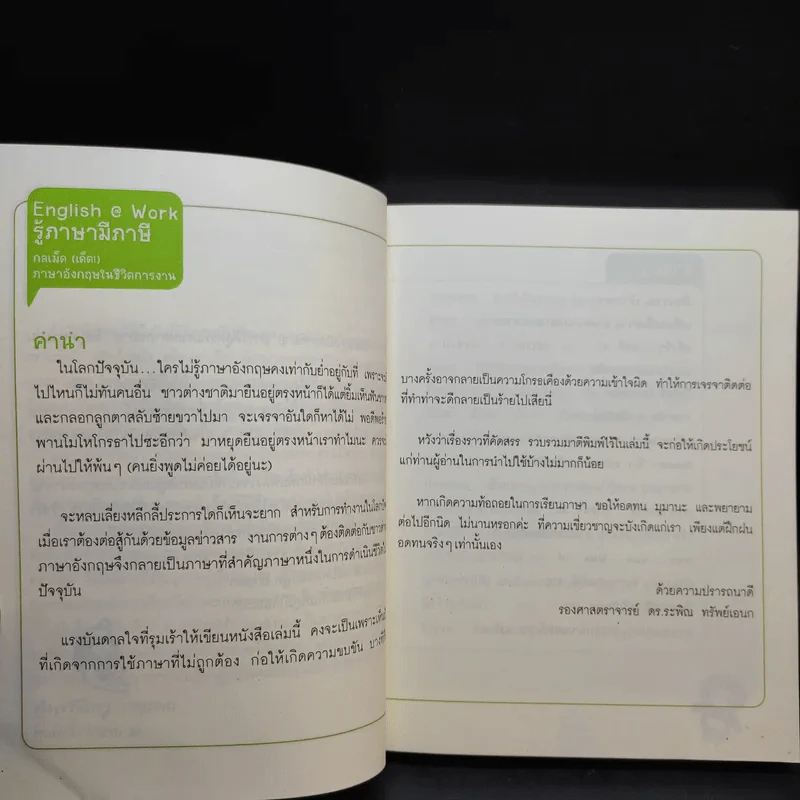 English @ Work
รู้ภาษามีภาษี
กลเม็ด (เด็ด!)
ภาษาอังกฤษในชีวิตการงาน
คำนำ
ในโลกปัจจุบัน...ใครไม่รู้ภาษาอังกฤษคงเท่ากับย่ำอยู่กับที่ เพราะจะ
ไปไหนก็ไม่ทันคนอื่น ชาวต่างชาติมายืนอยู่ตรงหน้าก็ได้แต่ยิ้มเห็นฟันขาว
และกลอกลูกตาสลับซ้ายขวาไปมา จะเจรจาอันใดก็หาได้ไม่
พานโมโหโกรธาไปซะอีกว่า มาหยุดยืนอยู่ตรงหน้าเราทำไมนะ ควรจะ
ผ่านไปให้พ้นๆ (คนยิ่งพูดไม่ค่อยได้อยู่นะ)
จะหลบเลี่ยงหลีกลี้ประการใดก็เห็นจะยาก สำหรับการทำงานในโลก
เมื่อเราต้องต่อสู้กันด้วยข้อมูลข่าวสาร งานการต่างๆ ต้องติดต่อกับ
ภาษาอังกฤษจึงกลายเป็นภาษาที่สำคัญภาษาหนึ่งในการดำเนินชีวิต
ปัจจุบัน
แรงบันดาลใจที่รุมเร้าให้เขียนหนังสือเล่มนี้ คงจะเป็นเพราะ
ที่เกิดจากการใช้ภาษาที่ไม่ถูกต้อง ก่อให้เกิดความขบขัน
บางครั้งอาจกลายเป็นความโกรธเคืองด้วยความเข้าใจผิด ทำให้การเจรจาติดต่อ
ที่ทำท่าจะดีกลายเป็นร้ายไปเสียนี่
หวังว่าเรื่องราวที่คัดสรร รวบรวมมาตีพิมพ์ไว้ในเล่มนี้ จะก่อให้เกิดประโยชน์
แก่ท่านผู้อ่านในการนำไปใช้บ้างไม่มากก็น้อย
หากเกิดความท้อถอยในการเรียนภาษา ขอให้อดทน มุมานะ และพยายาม
ต่อไปอีกนิด ไม่นานหรอกค่ะ ที่ความเชี่ยวชาญจะบังเกิดแก่เรา เพียงแต่ฝึกฝน
อดทนจริงๆ เท่านั้นเอง
ด้วยความปรารถนาดี
รองศาสตราจารย์ ดร.ระพิณ ทรัพย์เอนก